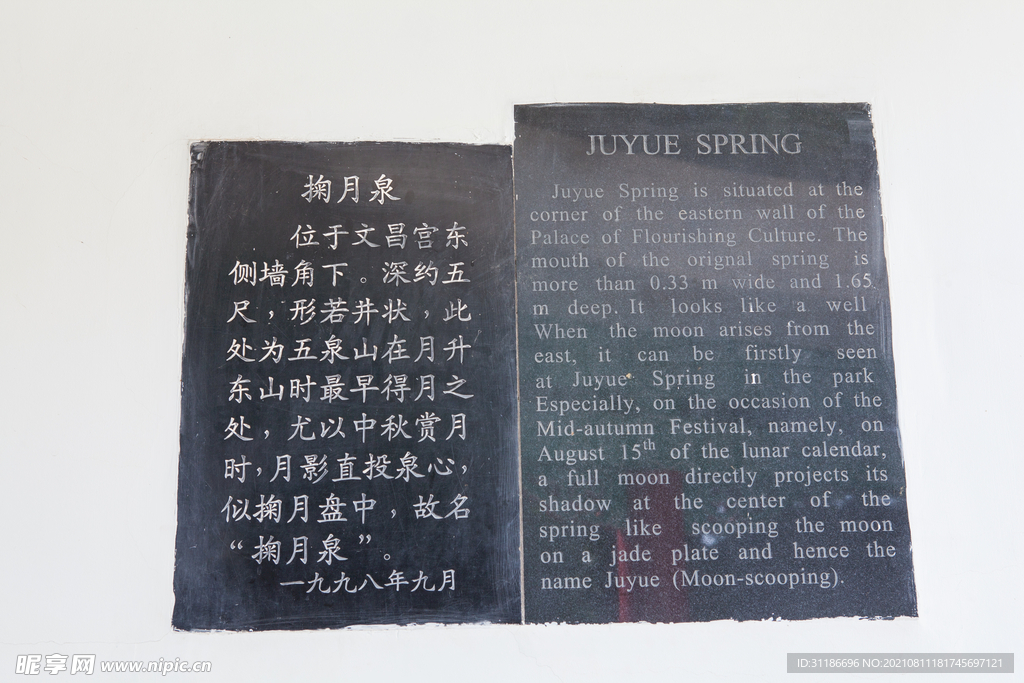 掬月泉
位于文昌宫东
侧墙角下。深约五
尺，形若井状，此
处为五泉山在月升
东山时最早得月之
处，尤以中秋赏月
时，月影直投泉心，
似掬月盘中，故名
“掬月泉”。
一九九八年九月
JUYUE SPRING
Juyue Spring is situated at the
corner of the eastern wall of the
Palace of Flourishing Culture. The
mouth of the orignal spring is
more than 0.33 m wide and 1.65
m deep. It looks like a well
When the moon arises from the
east, it can be firstly seen
at Juyue Spring in the park
Especially, on the occasion of the
Mid-autumn Festival, namely, on
August 15th of the lunar calendar,
a full moon directly projects its
shadow at the center of the
spring like scooping the moon
on a jade plate and hence the
name Juyue (Moon-scooping).
昵享网 www.nipic.cn
ID:31186696 NO:20210811181745697121